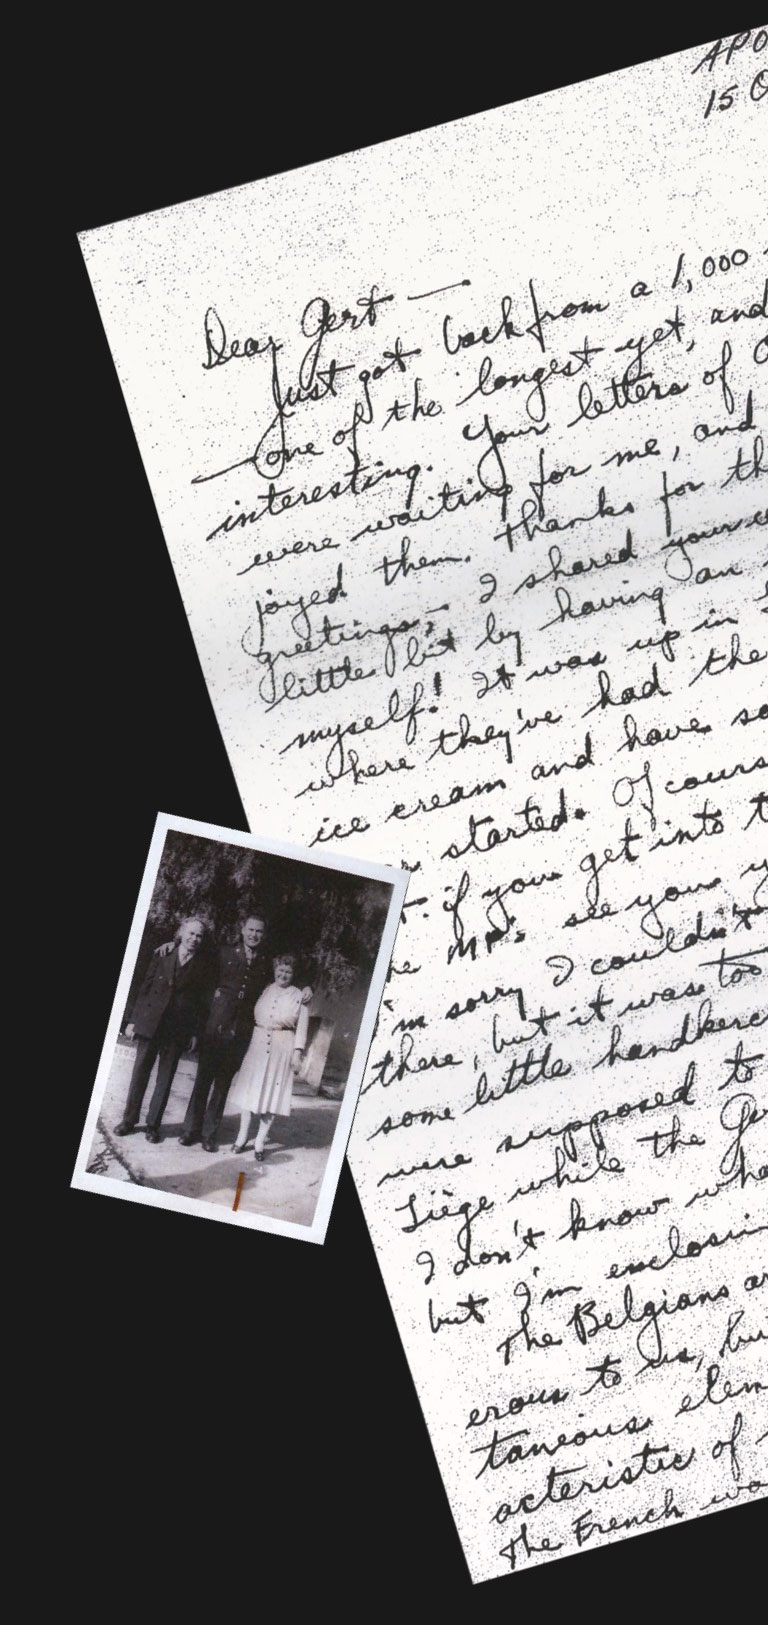 APO
15 O
Dear Gert —
Just got back from a 1,000
one of the longest yet, and
interesting. Your letters of
were waiting for me, and
joyed them. Thanks for th
greetings,- I shared your
little bit by having an
myself! It was up in
where they've had the
ice cream and have so
started. Of cours
if you get into t
he MP's see you y
I'm sorry I couldn't
there, but it was too
some little handkerc
were supposed to
Liège while the Ger
I don't know wha
but I'm enclosin
The Belgians a
erous to us, bu
taneous elem
acteristic of
The French wa